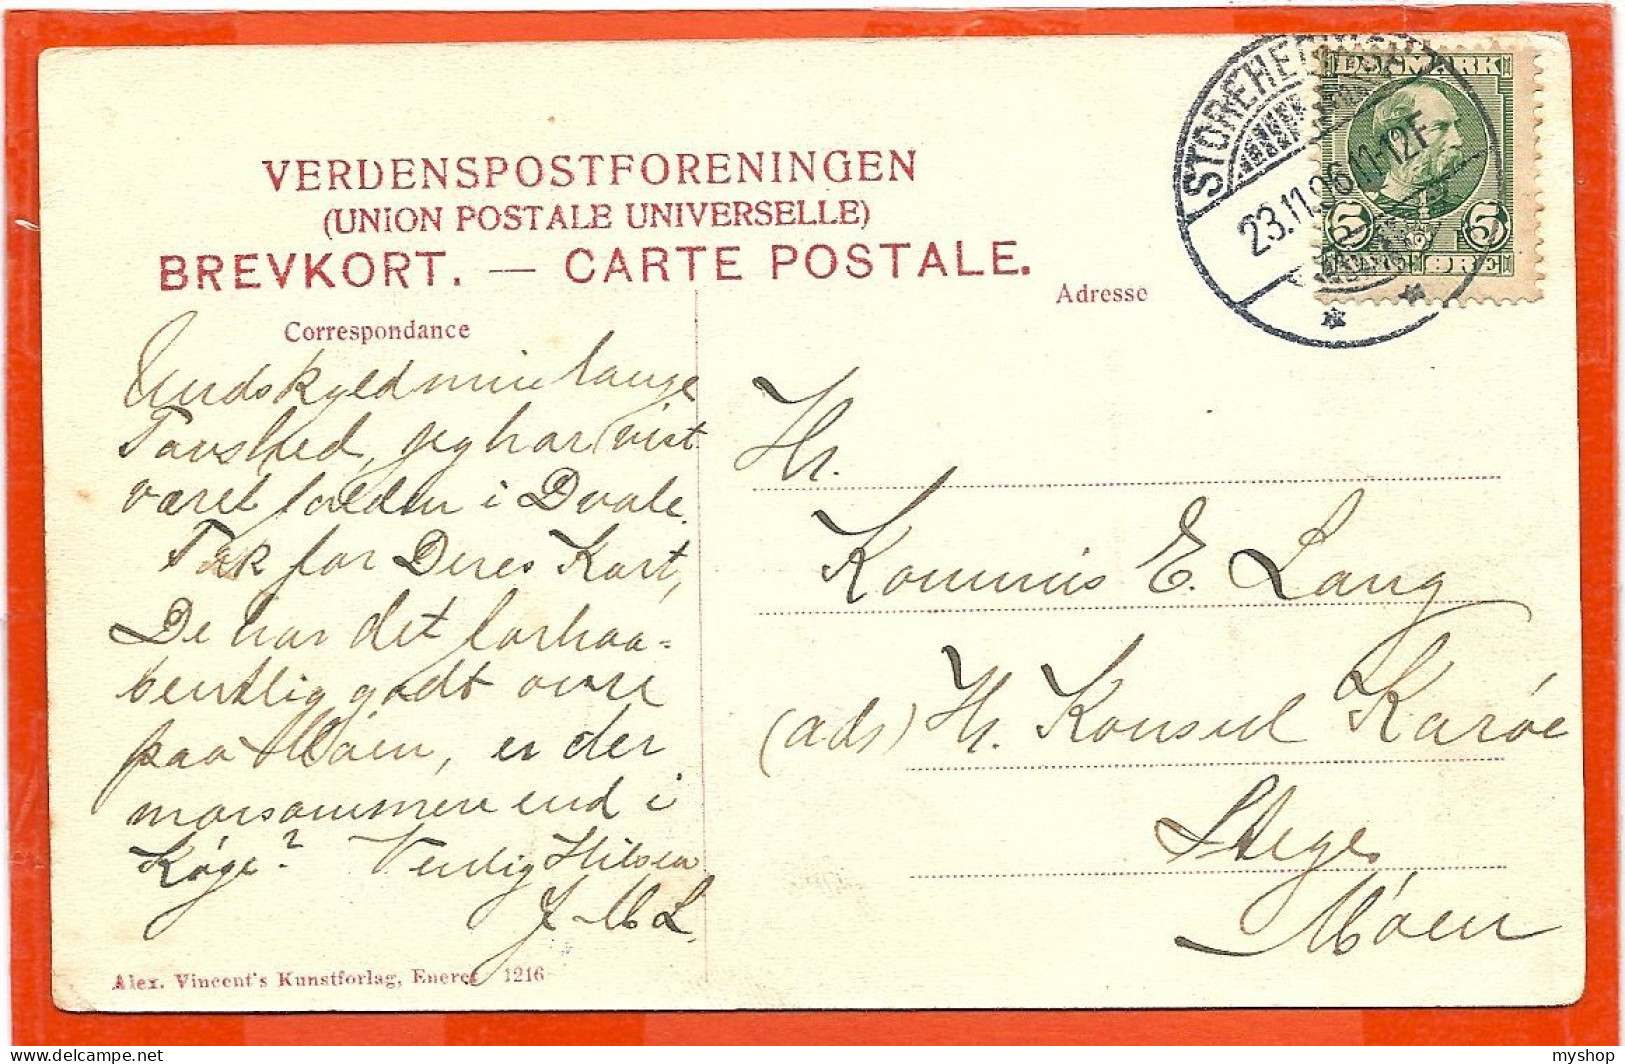 VERDENSPOSTFORENINGEN
(UNION POSTALE UNIVERSELLE)
BREVKORT. — CARTE POSTALE.
Correspondance
Adresse
STOREHEDINGE
23.11.06.11-12F
DANMARK
5 5
ØRE
Undskyld min lange
Tavshed, jeg har vist
været falden i Dvale.
Tak for Deres Kort,
De har det forhaa=
bentlig godt ovre
paa Möen, er der
morsommere end i
Køge? Venlig Hilsen
J. M. L.
Hr.
Kommis E. Lang
(ads) Hr. Konsul Karöe
Stege
Möen
Alex. Vincent's Kunstforlag, Eneret 1216
delcampe.net
myshop